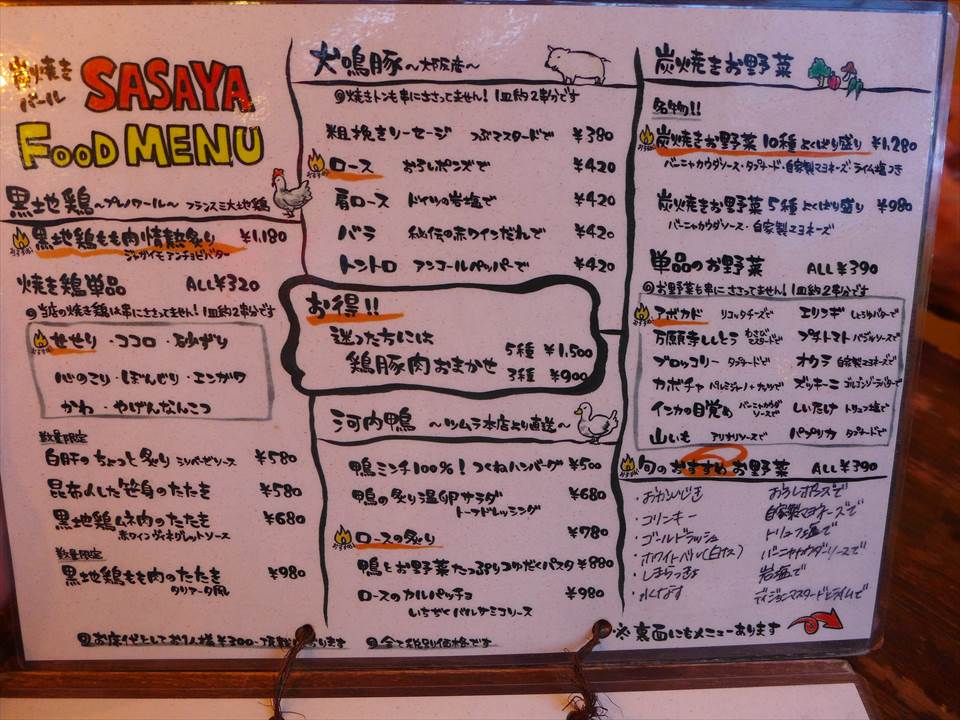 炭焼き
バール
SASAYA
FOOD MENU
黒地鶏 〜プレノワール〜 フランスミ大地鶏
黒地鶏もも肉情熱炙り ¥1,180
ジャガイモアンチョビバター
焼き鶏単品 ALL¥320
◎当店の焼き鶏は串にささってません! 1皿約2串分です
せせり・ココロ・砂ずり
心のこり・ぼんじり・エンガワ
かわ・やげんなんこつ
数量限定
白肝のちょっと炙り ¥580
昆布〆した笹身のたたき ¥580
黒地鶏ムネ肉のたたき ¥680
赤ワインヴィネグレットソース
数量限定
黒地鶏もも肉のたたき ¥980
タリアータ風
犬鳴豚 〜大阪産〜
◎焼きトンも串にささってません! 1皿約2串分です
粗挽きソーセージ つぶマスタードで ¥380
ロース おろしポンズで ¥420
肩ロース ドイツの岩塩で ¥420
バラ 秘伝の赤ワインだれで ¥420
トントロ アンコールペッパーで ¥420
お得!!
迷った方には
鶏豚肉おまかせ
5種 ¥1,500
3種 ¥900
河内鴨 〜ツムラ本店より直送〜
鴨ミンチ100%!つくねハンバーグ ¥500
鴨の炙り温卵サラダ ¥680
トーフドレッシング
ロースの炙り ¥780
鴨とお野菜たっぷりコク だくパスタ ¥880
ロースのカルパッチョ ¥980
いちぢくバルサミコソース
炭焼きお野菜
名物!!
炭焼きお野菜10種よくばり盛り ¥1,280
バーニャカウダソース・タプナード・自家製マヨネーズ・ライム塩つき
炭焼きお野菜5種よくばり盛り ¥980
バーニャカウダソース・自家製マヨネーズ
単品のお野菜 ALL¥390
◎お野菜も串にささってません! 1皿約2串分です
アボカド リコッタチーズで エリンギ しょうゆバターで
万願寺ししとう わさびマスタードで プチトマト バジルソースで
ブロッコリー タプナードで オクラ 自家製マヨネーズで
カボチャ パルミジャーノ+ナッツで ズッキーニ ゴルゴンゾーラバターで
インカの目覚め バーニャカウダソースで しいたけ トリュフ塩で
山いも アリオリソースで パプリカ タプナードで
旬のおすすめお野菜 ALL¥390
・おかひじき おろしポンズで
・コリンキー 自家製マヨネーズで
・ゴールドラッシュ トリュフ塩で
・ホワイトベル(白ナス) バーニャカウダソースで
・しまらっきょ 岩塩で
・水なす ディジョンマスタードとライムで
◎お席代としてお1人様¥300-頂戴しております
◎全て税別価格です
※裏面にもメニューあります